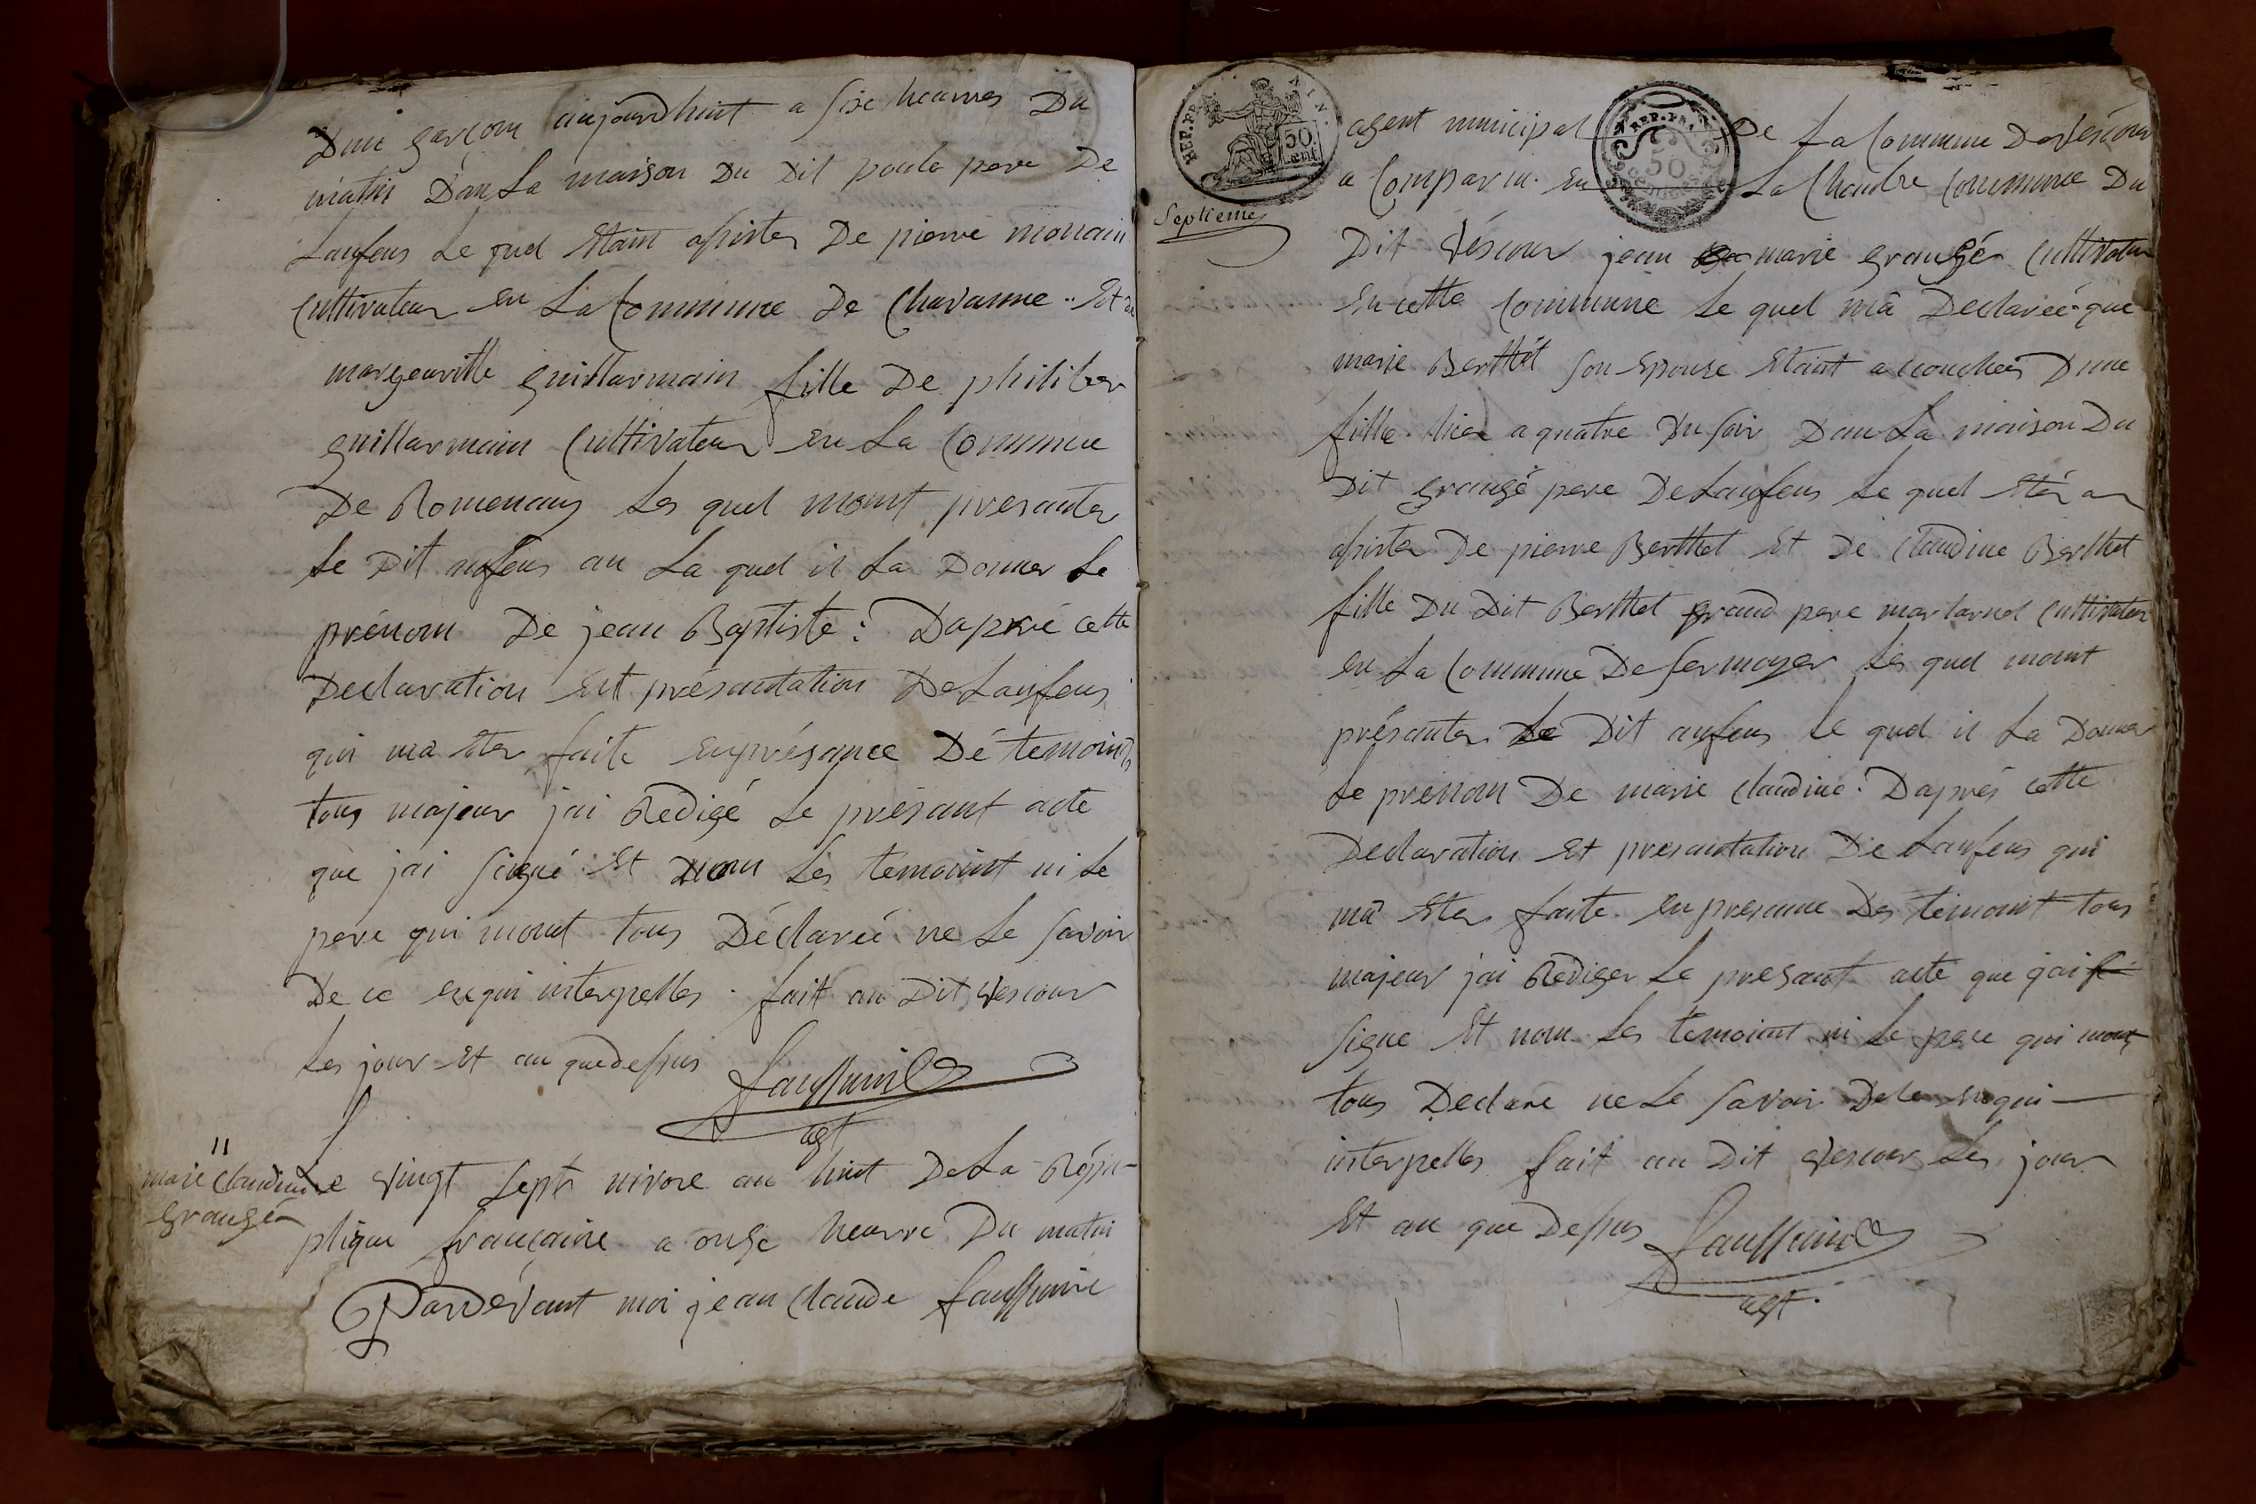 Dun garcom aujourdhuit a sixe heurres Du
matin Dan La maison Du Dit poulo pere De
Lanfens Le quel Etant asister De pierre morain
Cultivateur en La Commune De Chavanne .. Et de
margeuritte guillarmain fille De philiber
guillarmain Cultivateur en La Commune
De Romenay Les quel mont presanter
Le Dit anfens au La quel il La Donner Le
prénom De jean Baptiste : Dapré cette
Declaration Ent présantation De Lanfens
qui ma Eter faite enprésance Dé temoin
tous majeur jai Redigé Le présant acte
que jai signé Et nom Les temoint ni Le
pere qui mont tous Déclareé ne Le savoir
De ce enqui interpelles . fait au Dit Vescour
Les jour Et an que dessus
agt
marie Claudine
grangé
Le Vingt sept nivose an huit De La Répu-
plique francaine a onze heurre Du matin
Pardevant moi jean Claude
REP. FRA
50
cent
REP. FRA.
50
CENTIMES
Septieme
agent municipal De La Commune De Vescour
a Comparu en La Chanbre Commune Du
Dit Véscour jean marie grangér Cultivateur
En cette Commune Le quel ma Declareé que
marie Berthet son Epouse Etant acouchée Dune
fille hier a quatre Du soir Dan La maison Du
Dit grangé pere De Lanfens Le quel Eter a
asister De pierre Berthet Et De Claudine Berthet
fille Du Dit Berthet grand pere martarnel Cultivateur
en La Commune De sermoyer Les quel mont
présanter Le Dit anfens Le quel il La Donner
Le prenom De marie Claudine . Daprés cette
Declaration Et presantation De Lanfens qui
ma Eter faite en presanne Des temoint tous
majeur jai Rediger Le presant acte que jai
signe Et nom Les temoint ni Le pere qui mont
tous Declaré ne Le savoir De ce enqui
interpelles fait au Dit Vescour Les jour
Et an que Dessus
agt.